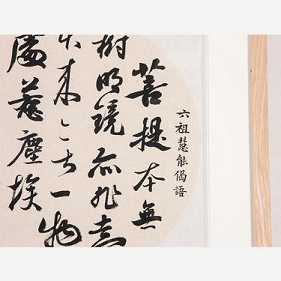 六祖慧能偈語
菩提本無
樹明鏡亦非臺
本来無一物
處惹塵埃